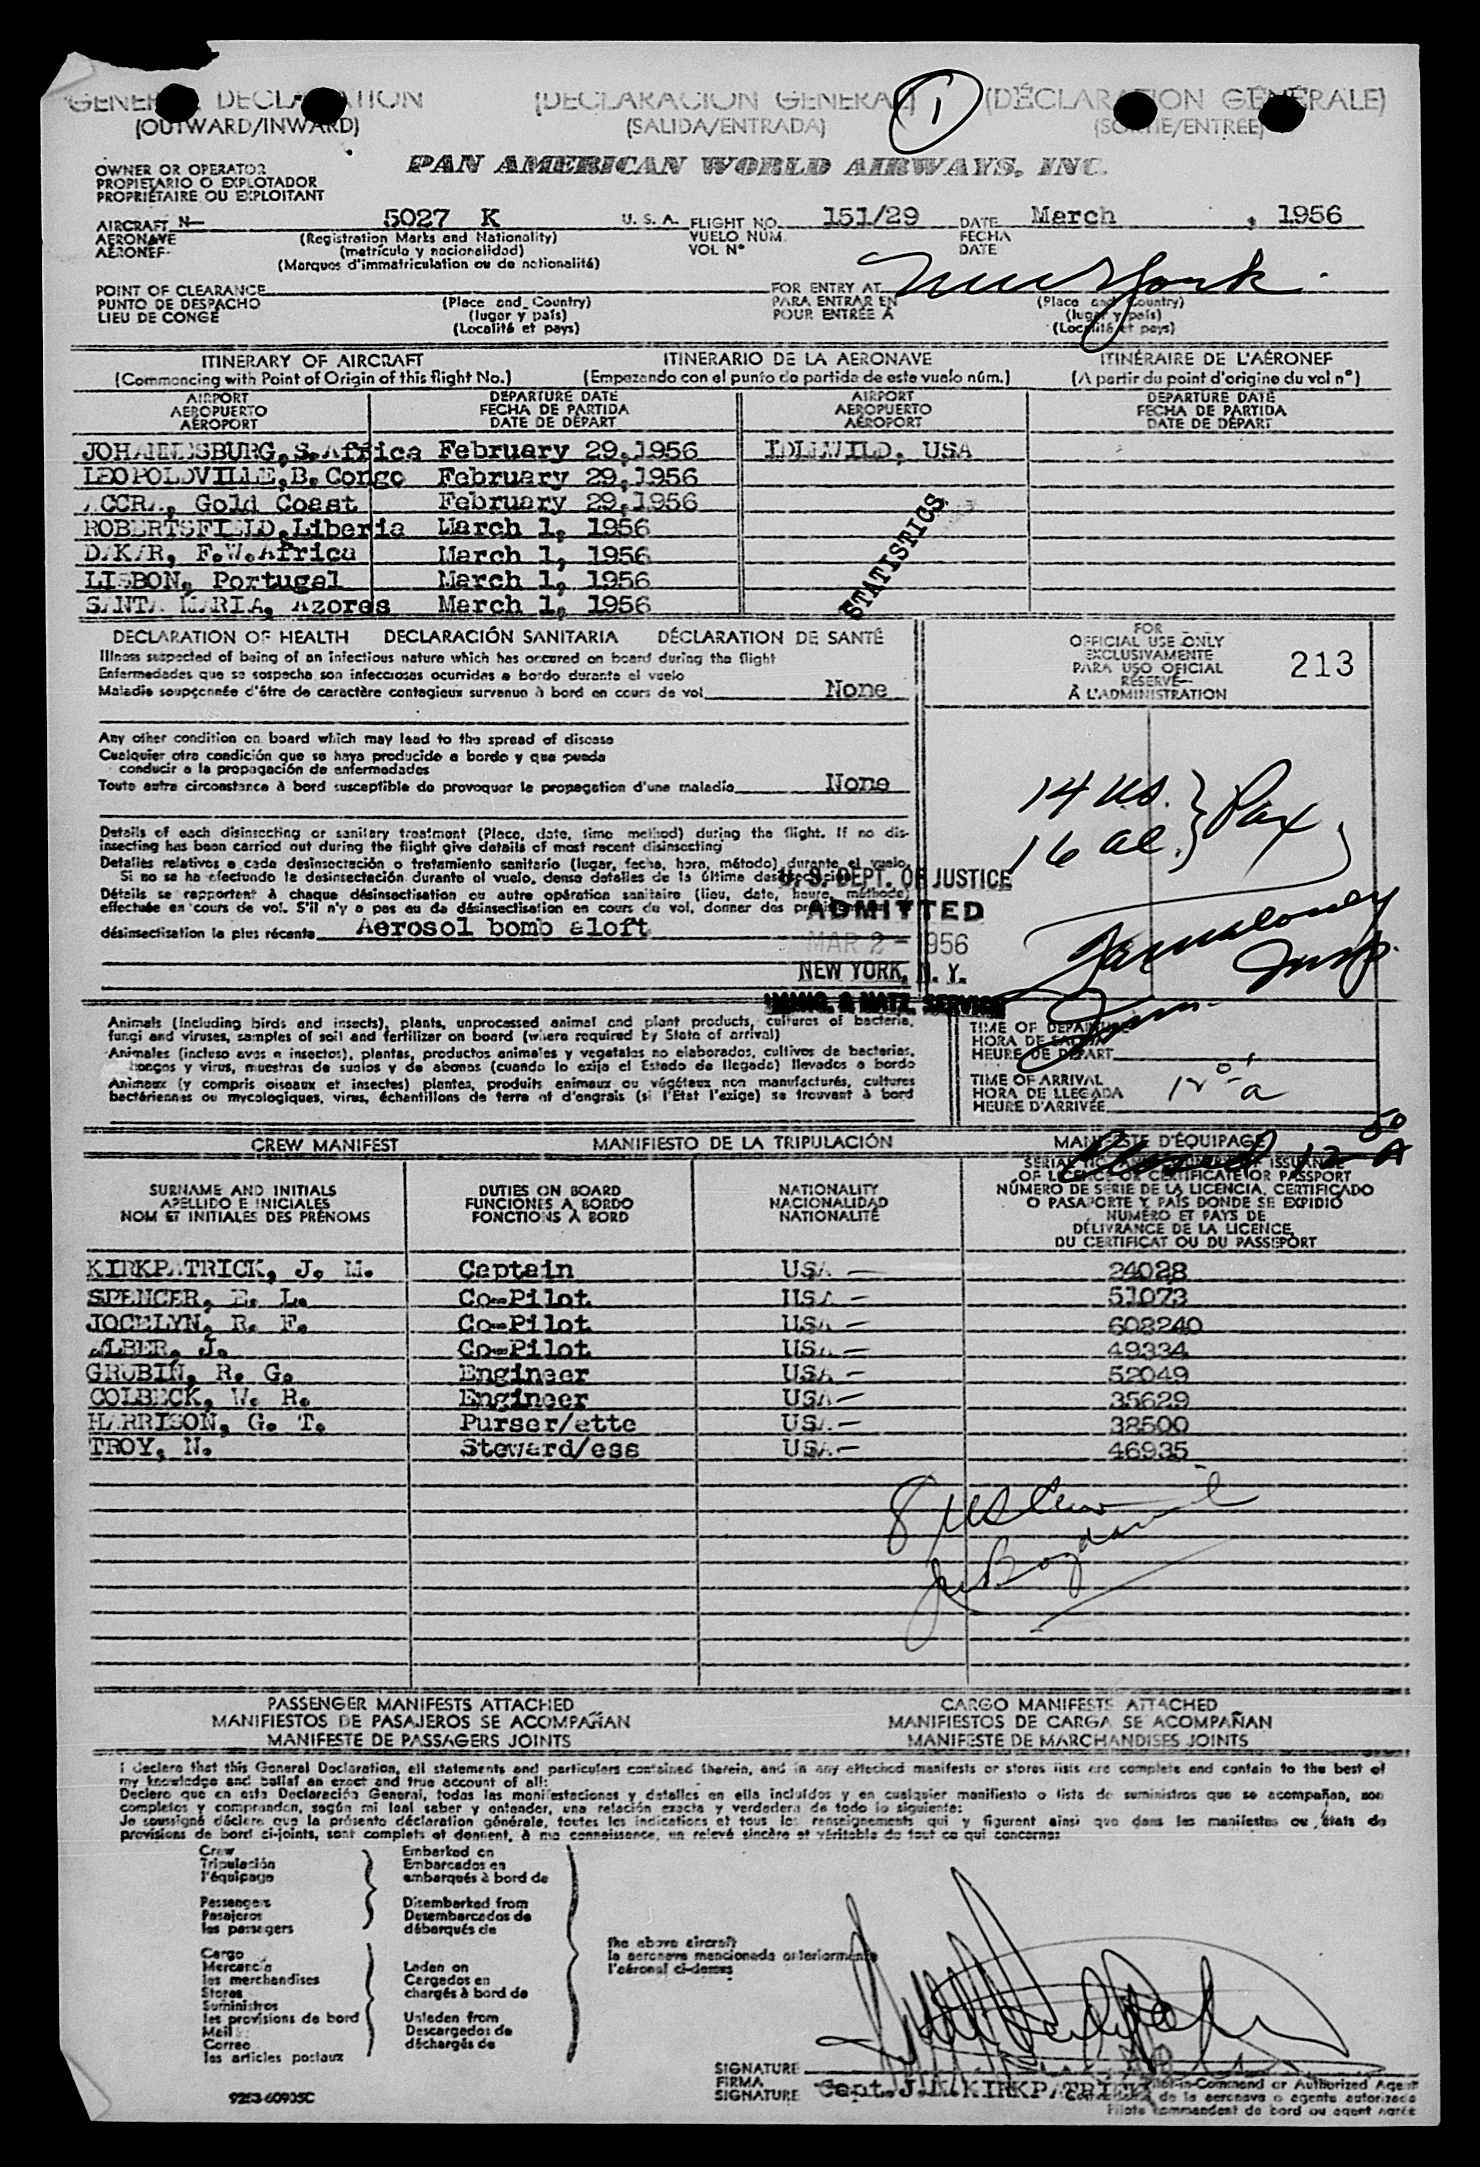 GENERAL DECLARATION (DECLARACION GENERAL) 1 (DÉCLARATION GÉNÉRALE)
(OUTWARD/INWARD) (SALIDA/ENTRADA) (SORTIE/ENTREE)
OWNER OR OPERATOR
PROPIETARIO O EXPLOTADOR
PROPRIÉTAIRE OU EXPLOITANT
PAN AMERICAN WORLD AIRWAYS, INC.
AIRCRAFT N— 5027 K U. S. A. FLIGHT NO. 151/29 DATE March , 1956
AERONAVE (Registration Marks and Nationality) VUELO NÚM. FECHA
AÉRONEF (matrícula y nacionalidad) VOL N° DATE
(Marques d'immatriculation ou de nationalité)
POINT OF CLEARANCE FOR ENTRY AT New York
PUNTO DE DESPACHO (Place and Country) PARA ENTRAR EN (Place and Country)
LIEU DE CONGÉ (lugar y país) POUR ENTRÉE A (lugar y país)
(Localité et pays) (Localité et pays)
ITINERARY OF AIRCRAFT ITINERARIO DE LA AERONAVE ITINÉRAIRE DE L'AÉRONEF
(Commencing with Point of Origin of this flight No.) (Empezando con el punto de partida de este vuelo núm.) (A partir du point d'origine du vol n°)
AIRPORT DEPARTURE DATE AIRPORT DEPARTURE DATE
AEROPUERTO FECHA DE PARTIDA AEROPUERTO FECHA DE PARTIDA
AÉROPORT DATE DE DÉPART AÉROPORT DATE DE DÉPART
JOHANNESBURG, S.Africa February 29,1956 IDLEWILD, USA
LEOPOLDVILLE,B.Congo February 29,1956
ACCRA, Gold Coast February 29,1956
ROBERTSFIELD,Liberia March 1, 1956
DAKAR, F.W.Africa March 1, 1956
LISBON, Portugal March 1, 1956
SANTA MARIA, Azores March 1, 1956
STATISTICS
DECLARATION OF HEALTH DECLARACIÓN SANITARIA DÉCLARATION DE SANTÉ
Illness suspected of being of an infectious nature which has occured on board during the flight
Enfermedades que se sospecha son infecciosas ocurridas a bordo durante el vuelo
Maladie soupçonnée d'être de caractère contagieux survenue à bord en cours de vol None
FOR
OFFICIAL USE ONLY
EXCLUSIVAMENTE
PARA USO OFICIAL
RÉSERVÉ
À L'ADMINISTRATION
213
Any other condition on board which may lead to the spread of disease
Cualquier otra condición que se haya producido a bordo y que pueda
conducir a la propagación de enfermedades
Toute autre circonstance à bord susceptible de provoquer la propagation d'une maladie None
14 US. } Pax
16 al.
Details of each disinsecting or sanitary treatment (Place, date, time method) during the flight. If no dis-
insecting has been carried out during the flight give details of most recent disinsecting
Detalles relativos a cada desinsectación o tratamiento sanitario (lugar, fecha, hora, método) durante el vuelo.
Si no se ha efectuado la desinsectación durante el vuelo, dense detalles de la última desinsectación
Détails se rapportent à chaque désinsectisation ou autre opération sanitaire (lieu, date, heure, méthode)
effectuée en cours de vol. S'il n'y a pas eu de désinsectisation en cours de vol, donner des
désinsectisation la plus récente Aerosol bomb aloft
U. S. DEPT. OF JUSTICE
ADMITTED
MAR 2 - 1956
NEW YORK, N. Y.
IMMIG. & NATZ. SERVICE
Insp.
Imm.
Animals (including birds and insects), plants, unprocessed animal and plant products, cultures of bacteria,
fungi and viruses, samples of soil and fertilizer on board (where required by State of arrival)
Animales (incluso aves e insectos), plantas, productos animales y vegetales no elaborados, cultivos de bacterias,
hongos y virus, muestras de suelos y de abonos (cuando lo exija el Estado de llegada) llevados a bordo
Animaux (y compris oiseaux et insectes) plantes, produits animaux ou végétaux non manufacturés, cultures
bactériennes ou mycologiques, virus, échantillons de terre et d'engrais (si l'Etat l'exige) se trouvant à bord
TIME OF DEPARTURE
HORA DE SALIDA
HEURE DE DÉPART
TIME OF ARRIVAL
HORA DE LLEGADA
HEURE D'ARRIVÉE
CREW MANIFEST MANIFIESTO DE LA TRIPULACIÓN MANIFESTE D'ÉQUIPAGE
SURNAME AND INITIALS
APELLIDO E INICIALES
NOM ET INITIALES DES PRÉNOMS
DUTIES ON BOARD
FUNCIONES A BORDO
FONCTIONS À BORD
NATIONALITY
NACIONALIDAD
NATIONALITÉ
OF LICENCE OR CERTIFICATE OR PASSPORT
NÚMERO DE SERIE DE LA LICENCIA, CERTIFICADO
O PASAPORTE Y PAÍS DONDE SE EXPIDIÓ
NUMÉRO ET PAYS DE
DÉLIVRANCE DE LA LICENCE,
DU CERTIFICAT OU DU PASSEPORT
KIRKPATRICK, J. M. Captain USA — 24028
SPENCER, E. L. Co-Pilot USA — 51073
JOCELYN, R. F. Co-Pilot USA — 608240
ALBER, J. Co-Pilot USA — 49334
GRUBIN, R. G. Engineer USA — 52049
COLBECK, W. R. Engineer USA — 35629
HARRISON, G. T. Purser/ette USA — 38500
TROY, N. Steward/ess USA — 46935
8 US Crew
PASSENGER MANIFESTS ATTACHED CARGO MANIFESTS ATTACHED
MANIFIESTOS DE PASAJEROS SE ACOMPAÑAN MANIFIESTOS DE CARGA SE ACOMPAÑAN
MANIFESTE DE PASSAGERS JOINTS MANIFESTE DE MARCHANDISES JOINTS
I declare that this General Declaration, all statements and particulars contained therein, and in any attached manifests or stores lists are complete and contain to the best of
my knowledge and belief an exact and true account of all:
Declaro que en esta Declaración General, todas las manifestaciones y detalles en ella incluidos y en cualquier manifiesto o lista de suministros que se acompañan, son
completos y comprenden, según mi leal saber y entender, una relación exacta y verdadera de todo lo siguiente:
Je soussigné déclare que la présente déclaration générale, toutes les indications et tous les renseignements qui y figurent ainsi que dans les manifestes ou états de
provisions de bord ci-joints, sont complets et donnent, à ma connaissance, un relevé sincère et véritable de tout ce qui concerne:
Crew Embarked on
Tripulación Embarcados en
l'équipage embarqués à bord de
Passengers Disembarked from
Pasajeros Desembarcados de
les passagers débarqués de
the above aircraft
la aeronave mencionada anteriormente
l'aéronef ci-dessus
Cargo
Mercancía Laden on
les merchandises Cargados en
Stores chargés à bord de
Suministros
les provisions de bord Unladen from
Mail Descargados de
Correo déchargés de
les articles postaux
SIGNATURE
FIRMA
SIGNATURE Capt. J.M.KIRKPATRICK
Pilot-in-Command or Authorized Agent
de la aeronave o agente autorizado
Pilote commandant de bord ou agent agréé
9253-60905C